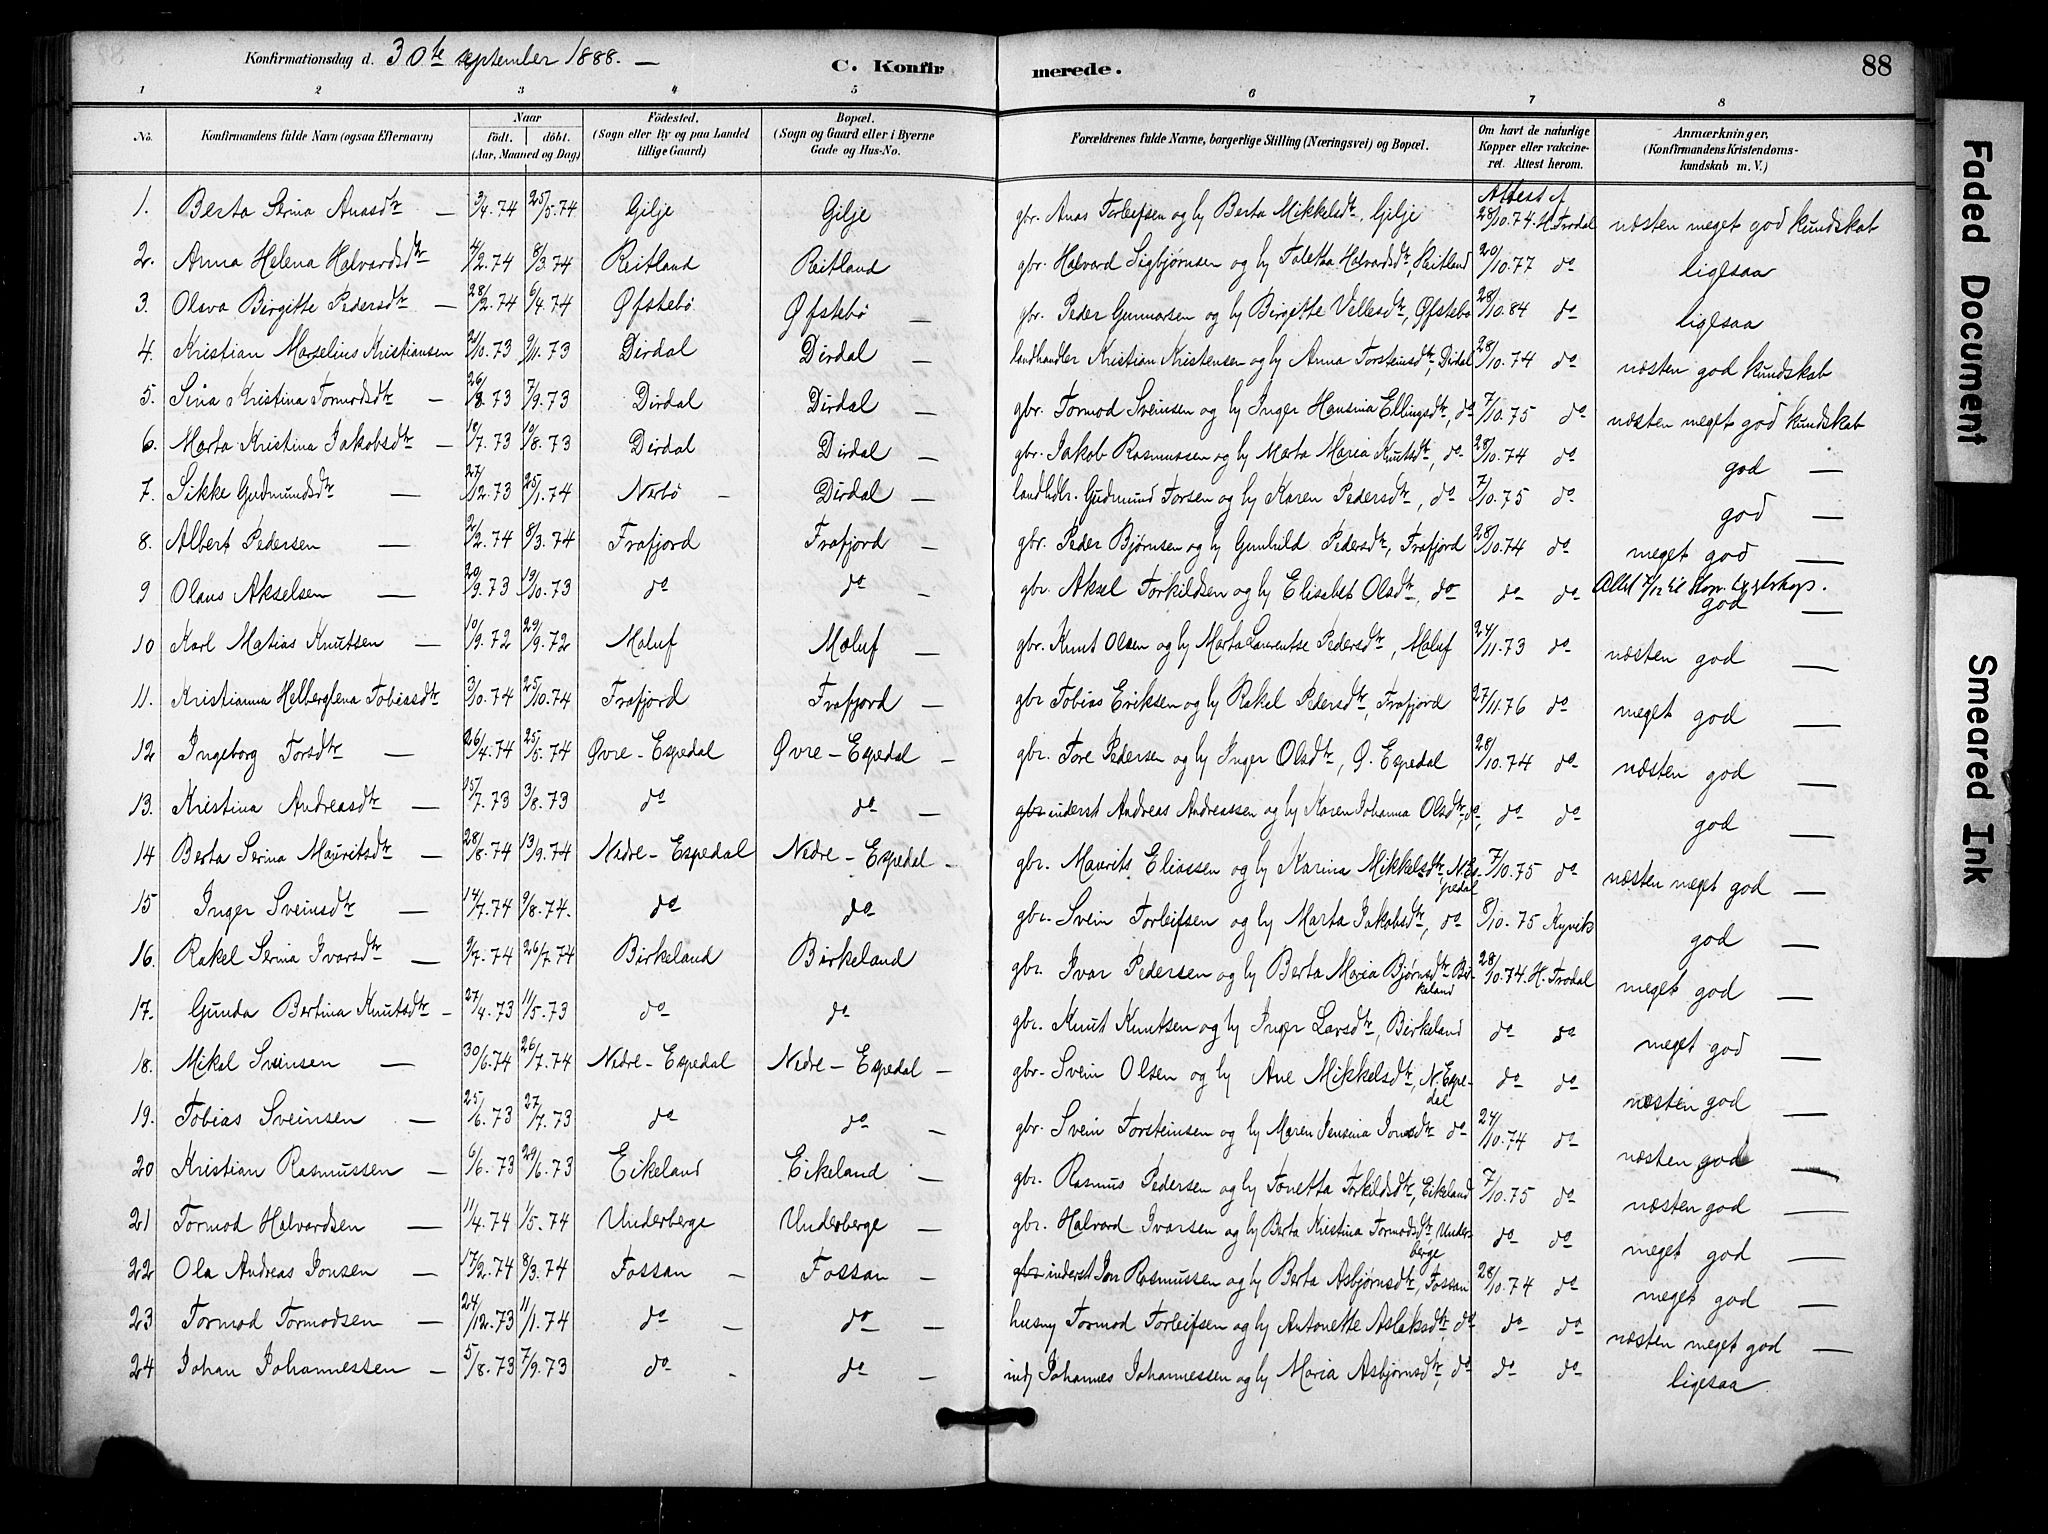 Konfirmationsdag d. 30te september 1888. — C. Konfirmerede. 88
1 2 3 4 5 6 7 8
No. Konfirmandens fulde Navn (ogsaa Efternavn) Naar födt. döbt. (Aar, Maaned og Dag) Födested. (Sogn eller By og paa Landet tillige Gaard) Bopæl. (Sogn og Gaard eller i Byerne Gade og Hus-No. Forældrenes fulde Navne, borgerlige Stilling (Næringsvei) og Bopæl. Om havt de naturlige Kopper eller vakcineret. Attest herom. Anmærkninger, (Konfirmandens Kristendomskundskab m. V.)
1. Berta Serina Anasdtr — 3/4.74 25/5.74 Gilje Gilje gbr. Anas Torleifsen og hy Berta Mikkelsdtr, Gilje Attest af 28/10.74. H. Trodal næsten meget god kundskab
2. Anna Helena Halvardsdtr 4/2.74 8/3.74 Reitland Reitland gbr. Halvard Sigbjørnsen og hy Taletta Halvardsdtr, Reitland 20/10.77 do ligesaa
3. Olava Birgitte Pedersdtr — 28/2.74 6/4.74 Øfstebø Øfstebø — gbr. Peder Gunnarsen og hy Birgitte Villesdtr, Øfstebø 28/10.84 do ligesaa
4. Kristian Marselius Kristiansen 21/10.73 9/11.73 Dirdal Dirdal — landhandler Kristian Kristensen og hy Anna Torsteinsdtr, Dirdal 28/10.74 do næsten god kundskab
5. Sina Kristina Tormodsdtr — 26/8.73 7/9.73 Dirdal Dirdal — gbr. Tormod Sveinsen og hy Inger Hansina Ellingsdtr, do 7/10.75 do næsten meget god kundskab
6. Marta Kristina Jakobsdtr — 18/7.73 10/8.73 Dirdal Dirdal — gbr. Jakob Rasmussen og hy Marta Maria Knutsdtr, do 28/10.74 do god —
7. Sikke Gudmundsdtr — 27/12.73 25/1.74 Nerbø — Dirdal — landhdlr. Gudmund Torsen og hy Karen Pedersdtr, do 7/10.75 do god —
8. Albert Pedersen — 2/2.74 8/3.74 Frafjord Frafjord — gbr. Peder Bjørnsen og hy Gunhild Pedersdtr, Frafjord 28/10.74 do meget god —
9 Olaus Akselsen — 20/9.73 19/10.73 do do — gbr. Aksel Torkildsen og hy Elisabet Olsdtr, do do do god —
10 Karl Matias Knutsen — 10/9.72 29/9.72 Maluf Maluf — gbr. Knut Olsen og hy Marta Laurentse Pedersdtr, Maluf 24/11.73 do næsten god —
11. Kristianna Helberglena Tobiasdtr 3/10.74 25/10.74 Frafjord Frafjord — gbr Tobias Eriksen og hy Rakel Pedersdtr, Frafjord 27/11.76 do meget god —
12 Ingeborg Torsdtr — 26/4.74 25/5.74 Øvre-Espedal Øvre-Espedal — gbr. Tore Pedersen og hy Inger Olsdtr, Ø. Espedal 28/10.74 do næsten god —
13. Kristina Andreasdtr — 15/7.73 3/8.73 do do — gbr inderst Andreas Andreassen og hy Karen Johanna Olsdtr, do, do do god —
14 Berta Serina Mauritsdtr — 28/8.74 13/9.74 Nedre-Espedal Nedre-Espedal — gbr. Maurits Eliassen og hy Karina Mikkelsdtr, N. Espedal 7/10.75 do næsten meget god —
15 Inger Sveinsdtr — 14/7.74 9/8.74. do do gbr. Svein Torleifsen og hy Marta Jakobsdtr, do 8/10.75 Kyvik god —
16. Rakel Serina Ivarsdtr — 9/7.74 26/7.74 Birkeland Birkeland gbr. Ivar Pedersen og hy Berta Maria Bjørnsdtr Birkeland 28/10.74. H. Trodal meget god —
17. Gunda Bertina Knutsdtr — 27/4.73 11/5.73 do do gbr. Knut Knutsen og hy Inger Larsdtr, Birkeland do do meget god —
18. Mikal Sveinsen — 30/6.74 26/7.74 Nedre-Espedal Nedre-Espedal — gbr. Svein Olsen og hy Ane Mikkelsdtr, N. Espedal do do næsten god —
19. Tobias Sveinsen — 25/6.73 27/7.73 do do — gbr. Svein Torsteinsen og hy Maren Jensina Jonsdtr do 24/10.74 do næsten god —
20 Kristian Rasmussen — 6/6.73 29/6.73 Eikeland Eikeland — gbr. Rasmus Pedersen og hy Tonetta Torkildsdtr, Eikeland 7/10.75 do næsten god —
21 Tormod Halvardsen — 11/4.74 1/5.74 Underberge Underberge — gbr. Halvard Ivarsen og hy Berta Kristina Tormodsdtr, Underberge do do meget god —
22 Ola Andreas Jonsen — 17/2.74 8/3.74 Fossan — Fossan — gbr inderst Jon Rasmussen og hy Berta Asbjørnsdtr, Fossan 28/10.74 do meget god —
23 Tormod Tormodsen — 24/12.73 11/1.74 do — do — husmy Tormod Torleifsen og hy Antonette Aslaksdtr, do do do næsten meget god —
24 Johan Johannessen — 5/8.73 7/9.73 do — do — indj Johannes Johannessen og hy Maria Asbjørnsdtr, do do do ligesaa
Faded Document
Smeared Ink